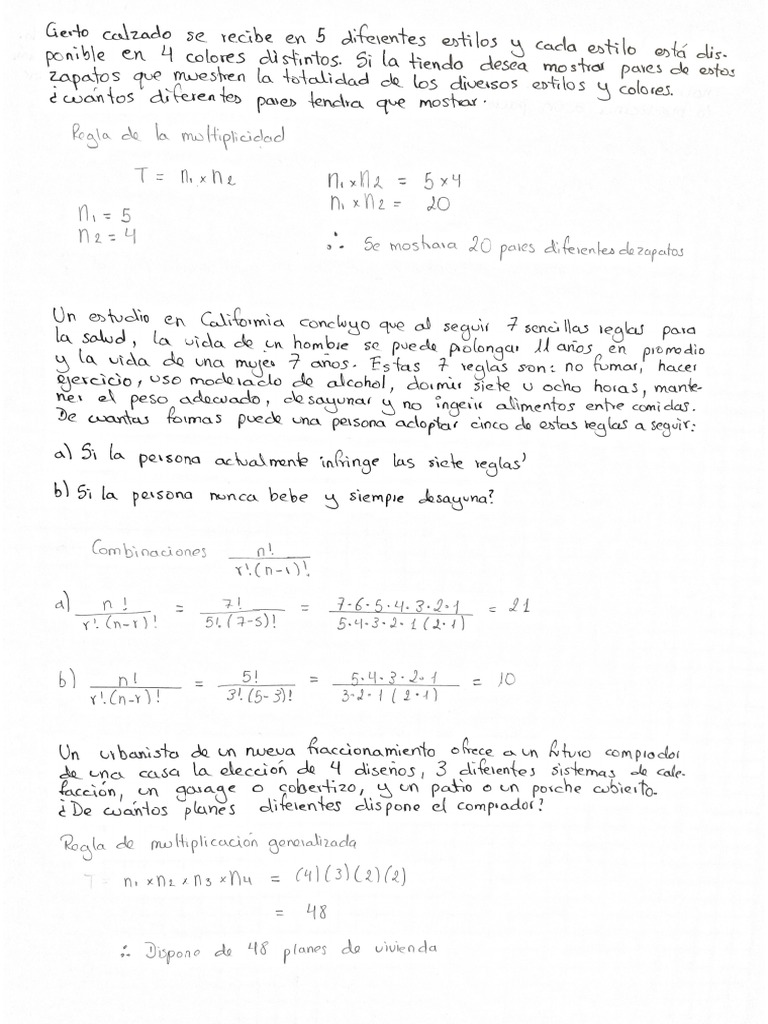 Cierto calzado se recibe en 5 diferentes estilos y cada estilo está dis-
ponible en 4 colores distintos. Si la tiendo desea mostrar pares de estos
zapatos que muestren la totalidad de los diversos estilos y colores.
¿cuántos diferentes pares tendra que mostrar.
Regla de la multiplicidad
T = n₁ x n₂
n₁ = 5
n₂ = 4
n₁ x n₂ = 5 x 4
n₁ x n₂ = 20
∴ Se mostrara 20 pares diferentes de zapatos
Un estudio en California concluyo que al seguir 7 sencillas reglas para
la salud, la vida de un hombre se puede prolongar 11 años en promedio
y la vida de una mujer 7 años. Estas 7 reglas son: no fumar, hacer
ejercicio, uso moderado de alcohol, dormir siete u ocho horas, mante-
ner el peso adecuado, desayunar y no ingerir alimentos entre comidas.
De cuantas formas puede una persona adoptar cinco de estas reglas a seguir:
a) Si la persona actualmente infringe las siete reglas'
b) Si la persona nunca bebe y siempre desayuna?
Combinaciones n! / r!.(n-r)!.
a) n! / r!.(n-r)! = 7! / 5!.(7-5)! = 7·6·5·4·3·2·1 / 5·4·3·2·1 (2·1) = 21
b) n! / r!.(n-r)! = 5! / 3!.(5-3)! = 5·4·3·2·1 / 3·2·1 (2·1) = 10
Un urbanista de un nueva fraccionamiento ofrece a un futuro comprador
de una casa la elección de 4 diseños, 3 diferentes sistemas de cale-
facción, un garage o cobertizo, y un patio o un porche cubierto.
¿De cuántos planes diferentes dispone el comprador?
Regla de multiplicación generalizada
T = n₁ x n₂ x n₃ x n₄ = (4)(3)(2)(2)
= 48
∴ Dispono de 48 planes de vivienda